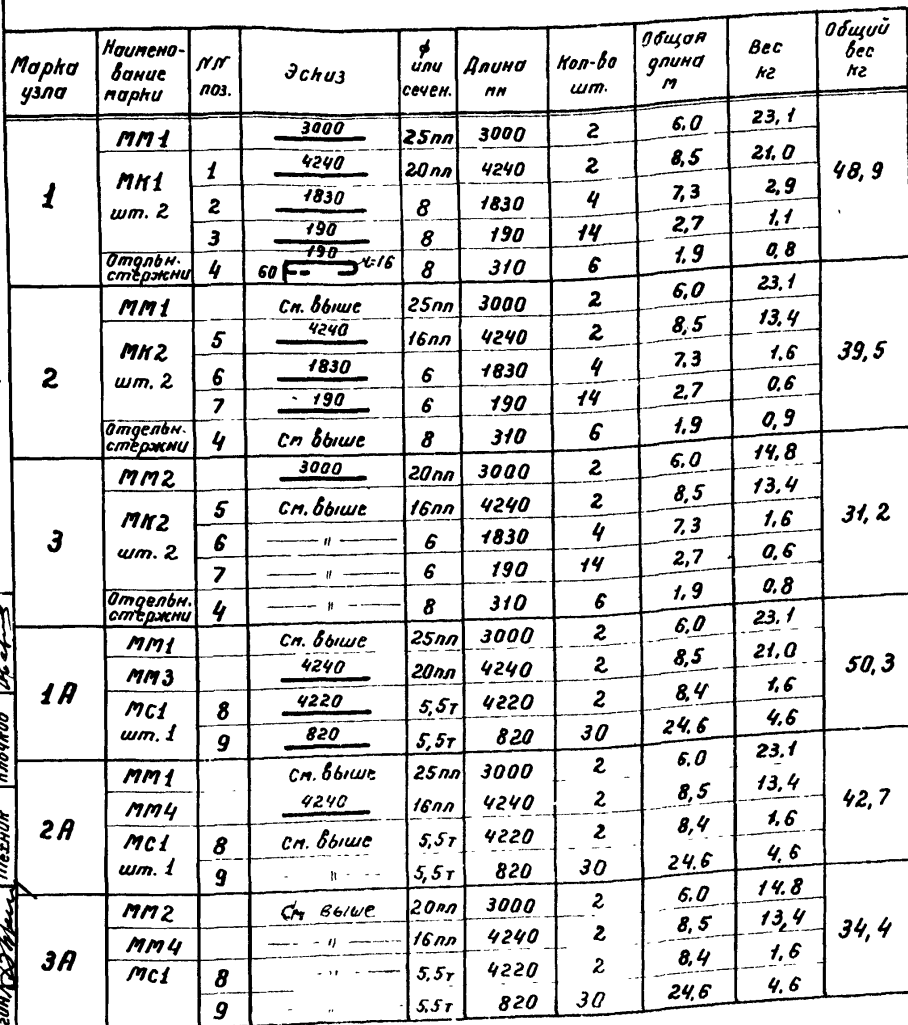 Марка узла | Наимено-вание марки | NN поз. | Эскиз | ф или сечен. | Длина мм | Кол-во шт. | Общая длина м | Вес кг | Общий вес кг
1 | ММ1 | | 3000 | 25пл | 3000 | 2 | 6,0 | 23,1 | 48,9
МК1 шт. 2 | 1 | 4240 | 20пл | 4240 | 2 | 8,5 | 21.0
2 | 1830 | 8 | 1830 | 4 | 7,3 | 2,9
3 | 190 | 8 | 190 | 14 | 2,7 | 1,1
Отдельн. стержни | 4 | 60 190 r=16 | 8 | 310 | 6 | 1.9 | 0,8
2 | ММ1 | | См. выше | 25пл | 3000 | 2 | 6,0 | 23.1 | 39,5
МК2 шт. 2 | 5 | 4240 | 16пл | 4240 | 2 | 8,5 | 13,4
6 | 1830 | 6 | 1830 | 4 | 7,3 | 1.6
7 | 190 | 6 | 190 | 14 | 2,7 | 0,6
Отдельн. стержни | 4 | См выше | 8 | 310 | 6 | 1.9 | 0,9
3 | ММ2 | | 3000 | 20пл | 3000 | 2 | 6,0 | 14,8 | 31,2
МК2 шт. 2 | 5 | См. выше | 16пл | 4240 | 2 | 8,5 | 13.4
6 | — " — | 6 | 1830 | 4 | 7,3 | 1,6
7 | — " — | 6 | 190 | 14 | 2,7 | 0,6
Отдельн. стержни | 4 | — " — | 8 | 310 | 6 | 1,9 | 0.8
1А | ММ1 | | См. выше | 25пл | 3000 | 2 | 6,0 | 23.1 | 50,3
ММ3 | | 4240 | 20пл | 4240 | 2 | 8,5 | 21,0
МС1 шт. 1 | 8 | 4220 | 5,5т | 4220 | 2 | 8,4 | 1,6
9 | 820 | 5,5т | 820 | 30 | 24.6 | 4.6
2А | ММ1 | | См. выше | 25пл | 3000 | 2 | 6.0 | 23.1 | 42,7
ММ4 | | 4240 | 16пл | 4240 | 2 | 8,5 | 13,4
МС1 шт. 1 | 8 | См. выше | 5,5т | 4220 | 2 | 8,4 | 1.6
9 | - " - | 5,5т | 820 | 30 | 24.6 | 4,6
3А | ММ2 | | См выше | 20пл | 3000 | 2 | 6.0 | 14.8 | 34,4
ММ4 | | - " - | 16пл | 4240 | 2 | 8,5 | 13,4
МС1 | 8 | - " - | 5,5т | 4220 | 2 | 8,4 | 1,6
9 | - " | 5,5т | 820 | 30 | 24,6 | 4.6
Техник